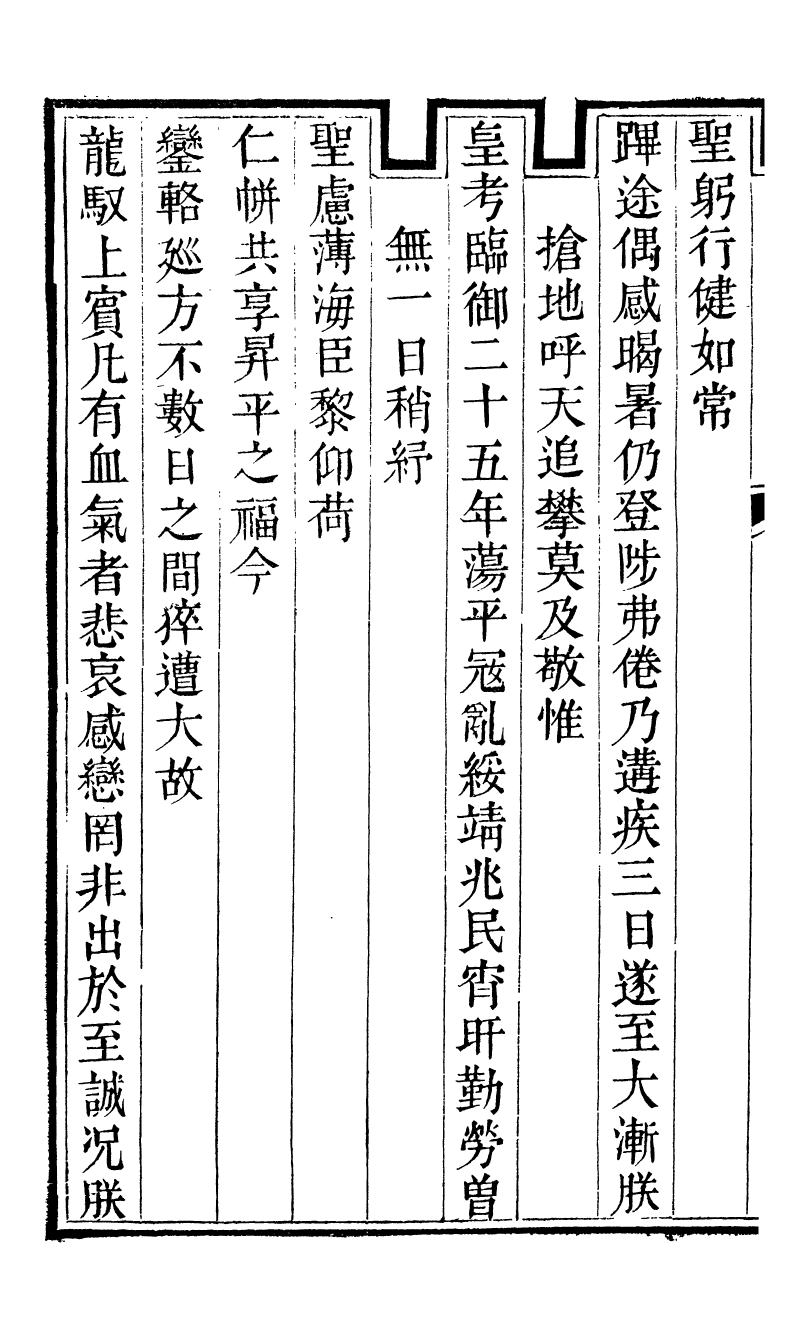 聖躬行健如常
蹕途偶感暍暑仍登陟弗倦乃遘疾三日遂至大漸朕
搶地呼天追攀莫及敬惟
皇考臨御二十五年蕩平冦亂綏靖兆民宵旰勤勞曽
無一日稍紓
聖慮薄海臣黎仰荷
仁帡共享昇平之福今
鑾輅廵方不數日之間猝遭大故
龍馭上賓凡有血氣者悲哀感戀罔非出於至誠况朕